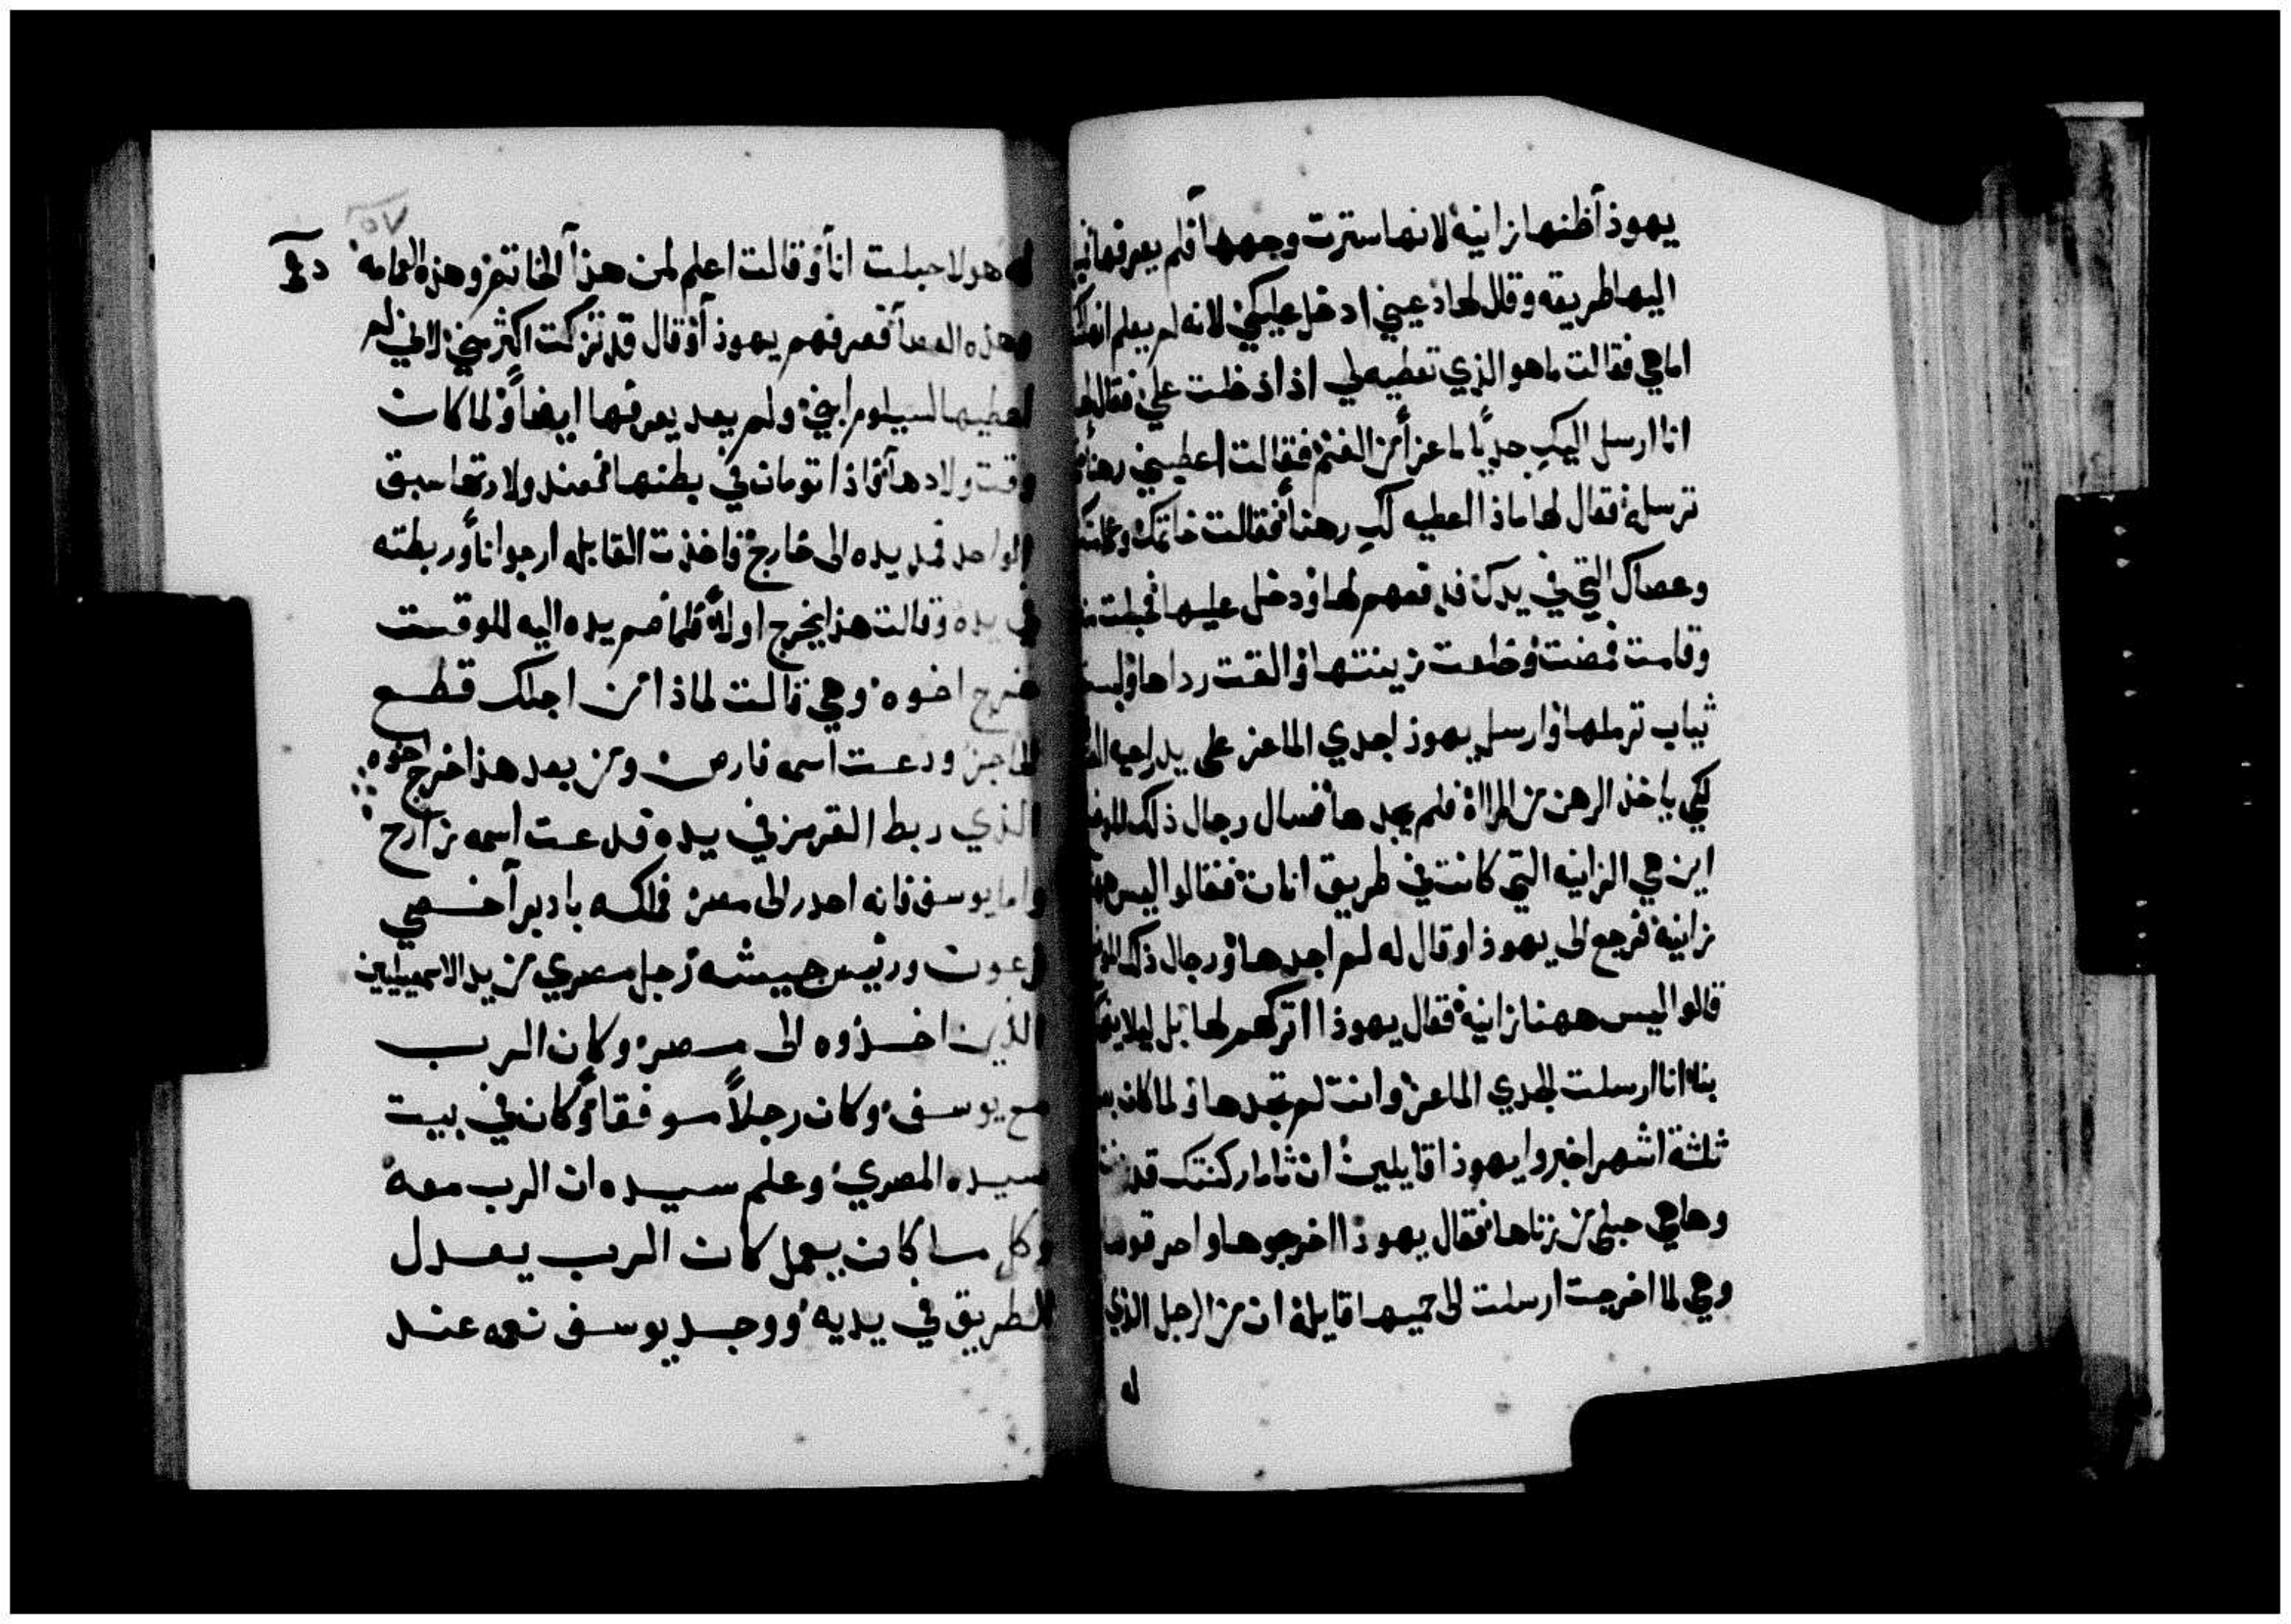 يهوذا ظنها زانية لانها سترت وجهها فلم يعرفها
اليها طريقه وقال لها دعيني ادخل عليكي لانه لم يعلم انها
اما هي فقالت ما هو الذي تعطيه لي اذا دخلت علي فقال لها
انا ارسل اليكِ جدياً ماعزاً من الغنم فقالت اعطيني رهناً
ترسله فقال لها ماذا اعطيه لكِ رهناً فقالت خاتمك وعمامتك
وعصاك التي في يدك فدفعهم لها ودخل عليها فحبلت
وقامت فمضت وخلعت زينتها والقت رداها ولبست
ثياب ترملها وارسل يهوذا جدي الماعز على يد راعيه
لكي ياخذ الرهن من المراة فلم يجدها فسال رجال ذلك الموضع
اين هي الزانيه التي كانت في طريق انان فقالوا ليس
زانية فرجع الى يهوذا وقال له لم اجدها ورجال ذلك الموضع
قالوا ليس ههنا زانية فقال يهوذا اتركهم لها بل ليلا
بنا انا ارسلت الجدي الماعز وانت لم تجدها ولما كان بعد
ثلثة اشهر اخبروا يهوذا قايلين ان ثامار كنتك قد زنت
وها هي حبلى من زناها فقال يهوذا اخرجوها واحرقوها
وهي لما اخرجت ارسلت الى حميها قايلة ان من الرجل الذي
له
٥٧
له هولا حبلت انا وقالت اعلم لمن هذا الخاتم وهذه العمامه
وهذه العصا فعرفهم يهوذا وقال قد تزكت اكثر مني لاني لم
اعطيها لسيلوم ابني ولم يعد يعرفها ايضاً ولما كان
وقت ولادها فاذا تومان في بطنها فعند ولادتها سبق
الواحد فمد يده الى خارج فاخذت القابله ارجواناً وربطته
في يده وقالت هذا يخرج اولاً فلما ضم يده اليه للوقت
خرج اخوه وهي قالت لماذا من اجلك قطع
الحاجز ودعت اسمه فارص ومن بعد هذا خرج اخوه
الذي ربط القرمز في يده فدعت اسمه زارح
واما يوسف فانه احدر الى مصر فملكه بادبرا خصي
فرعون ورئيس جيشه رجل مصري من يد الاسمعيليين
الذين اخذوه الى مصر وكان الرب
مع يوسف وكان رجلاً موفقاً وكان في بيت
سيده المصري وعلم سيده ان الرب معه
وكل ما كان يعمل كان الرب يعدل
الطريق في يديه ووجد يوسف نعمه عند